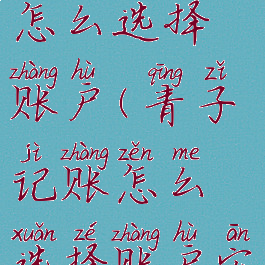 怎么选择
zhàng hù qīng zǐ
账户(青子
jì zhàng zěn me
记账怎么
xuǎn zé zhàng hù ān
选择账户安